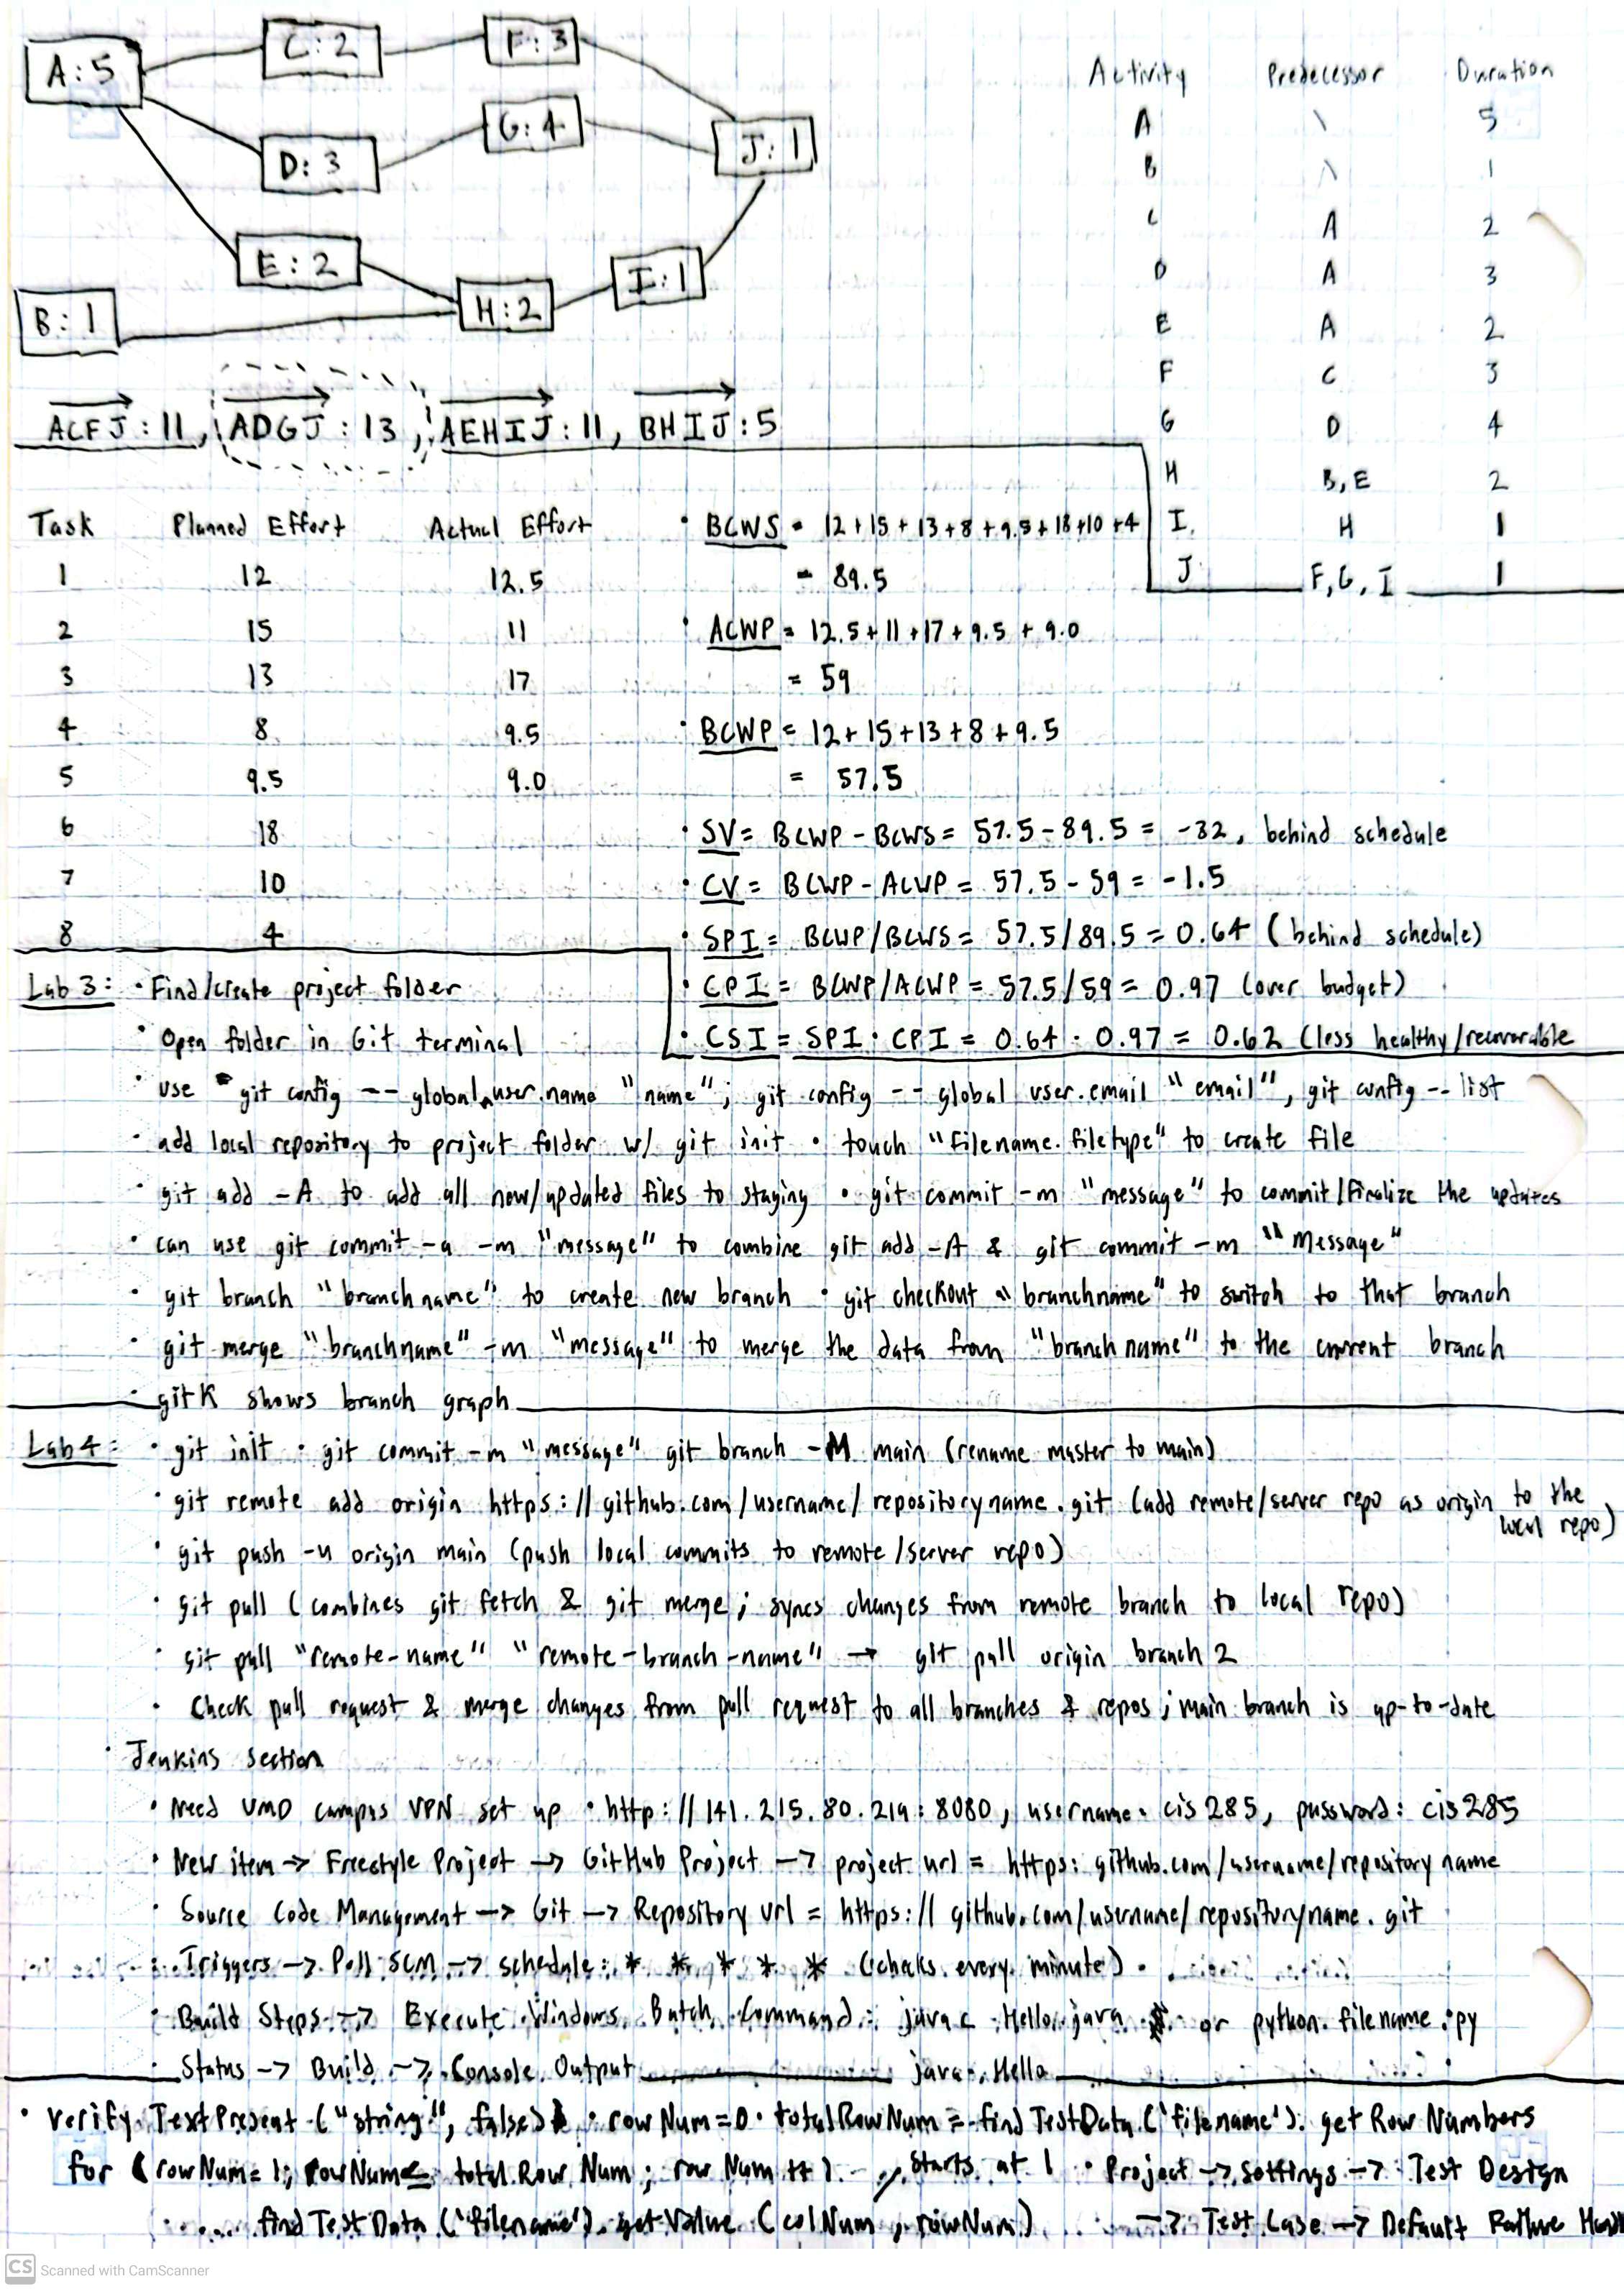 A:5
C:2
F:3
D:3
G:4
J:1
E:2
B:1
H:2
I:1
ACFJ:11, ADGJ:13, AEHIJ:11, BHIJ:5
Activity Predecessor Duration
A \ 5
B \ 1
C A 2
D A 3
E A 2
F C 3
G D 4
H B,E 2
I H 1
J F,G,I 1
Task Planned Effort Actual Effort
1 12 12.5
2 15 11
3 13 17
4 8 9.5
5 9.5 9.0
6 18
7 10
8 4
• BCWS = 12+15+13+8+9.5+18+10+4
= 89.5
• ACWP = 12.5+11+17+9.5+9.0
= 59
• BCWP = 12+15+13+8+9.5
= 57.5
• SV = BCWP - BCWS = 57.5-89.5 = -32, behind schedule
• CV = BCWP - ACWP = 57.5 - 59 = -1.5
• SPI = BCWP/BCWS = 57.5/89.5 = 0.64 (behind schedule)
• CPI = BCWP/ACWP = 57.5/59 = 0.97 (over budget)
• CSI = SPI · CPI = 0.64 · 0.97 = 0.62 (less healthy/recoverable
Lab 3: • Find/create project folder
• Open folder in Git terminal
• use git config --global user.name "name"; git config --global user.email "email", git config --list
• add local repository to project folder w/ git init • touch "filename.filetype" to create file
• git add -A to add all new/updated files to staging • git commit -m "message" to commit/finalize the updates
• can use git commit -a -m "message" to combine git add -A & git commit -m "Message"
• git branch "branchname" to create new branch • git checkout "branchname" to switch to that branch
• git merge "branchname" -m "message" to merge the data from "branchname" to the current branch
• gitK shows branch graph
Lab 4: • git init • git commit -m "message" git branch -M main (rename master to main)
• git remote add origin https://github.com/username/repositoryname.git (add remote/server repo as origin to the local repo)
• git push -u origin main (push local commits to remote/server repo)
• git pull (combines git fetch & git merge; syncs changes from remote branch to local repo)
• git pull "remote-name" "remote-branch-name" → git pull origin branch 2
• Check pull request & merge changes from pull request to all branches & repos; main branch is up-to-date
• Jenkins section
• Need UMD campus VPN set up • http://141.215.80.214:8080, username: cis285, password: cis285
• New item → Freestyle Project → GitHub Project → project url = https: github.com/username/repository name
• Source Code Management → Git → Repository url = https://github.com/username/repositoryname.git
• Triggers → Poll SCM → schedule: * * * * * (checks every minute)
• Build Steps → Execute Windows Batch Command: javac Hello.java or python filename.py
• Status → Build → Console Output java Hello
• verify TextPresent ("string", false) • rowNum=0 • totalRowNum = findTestData('filename').getRowNumbers
for (rowNum=1; rowNum≤ totalRowNum; rowNum++) // starts at 1 • Project → Settings → Test Design
findTestData('filename').getValue (colNum, rowNum) → Test Case → Default Failure
CS Scanned with CamScanner